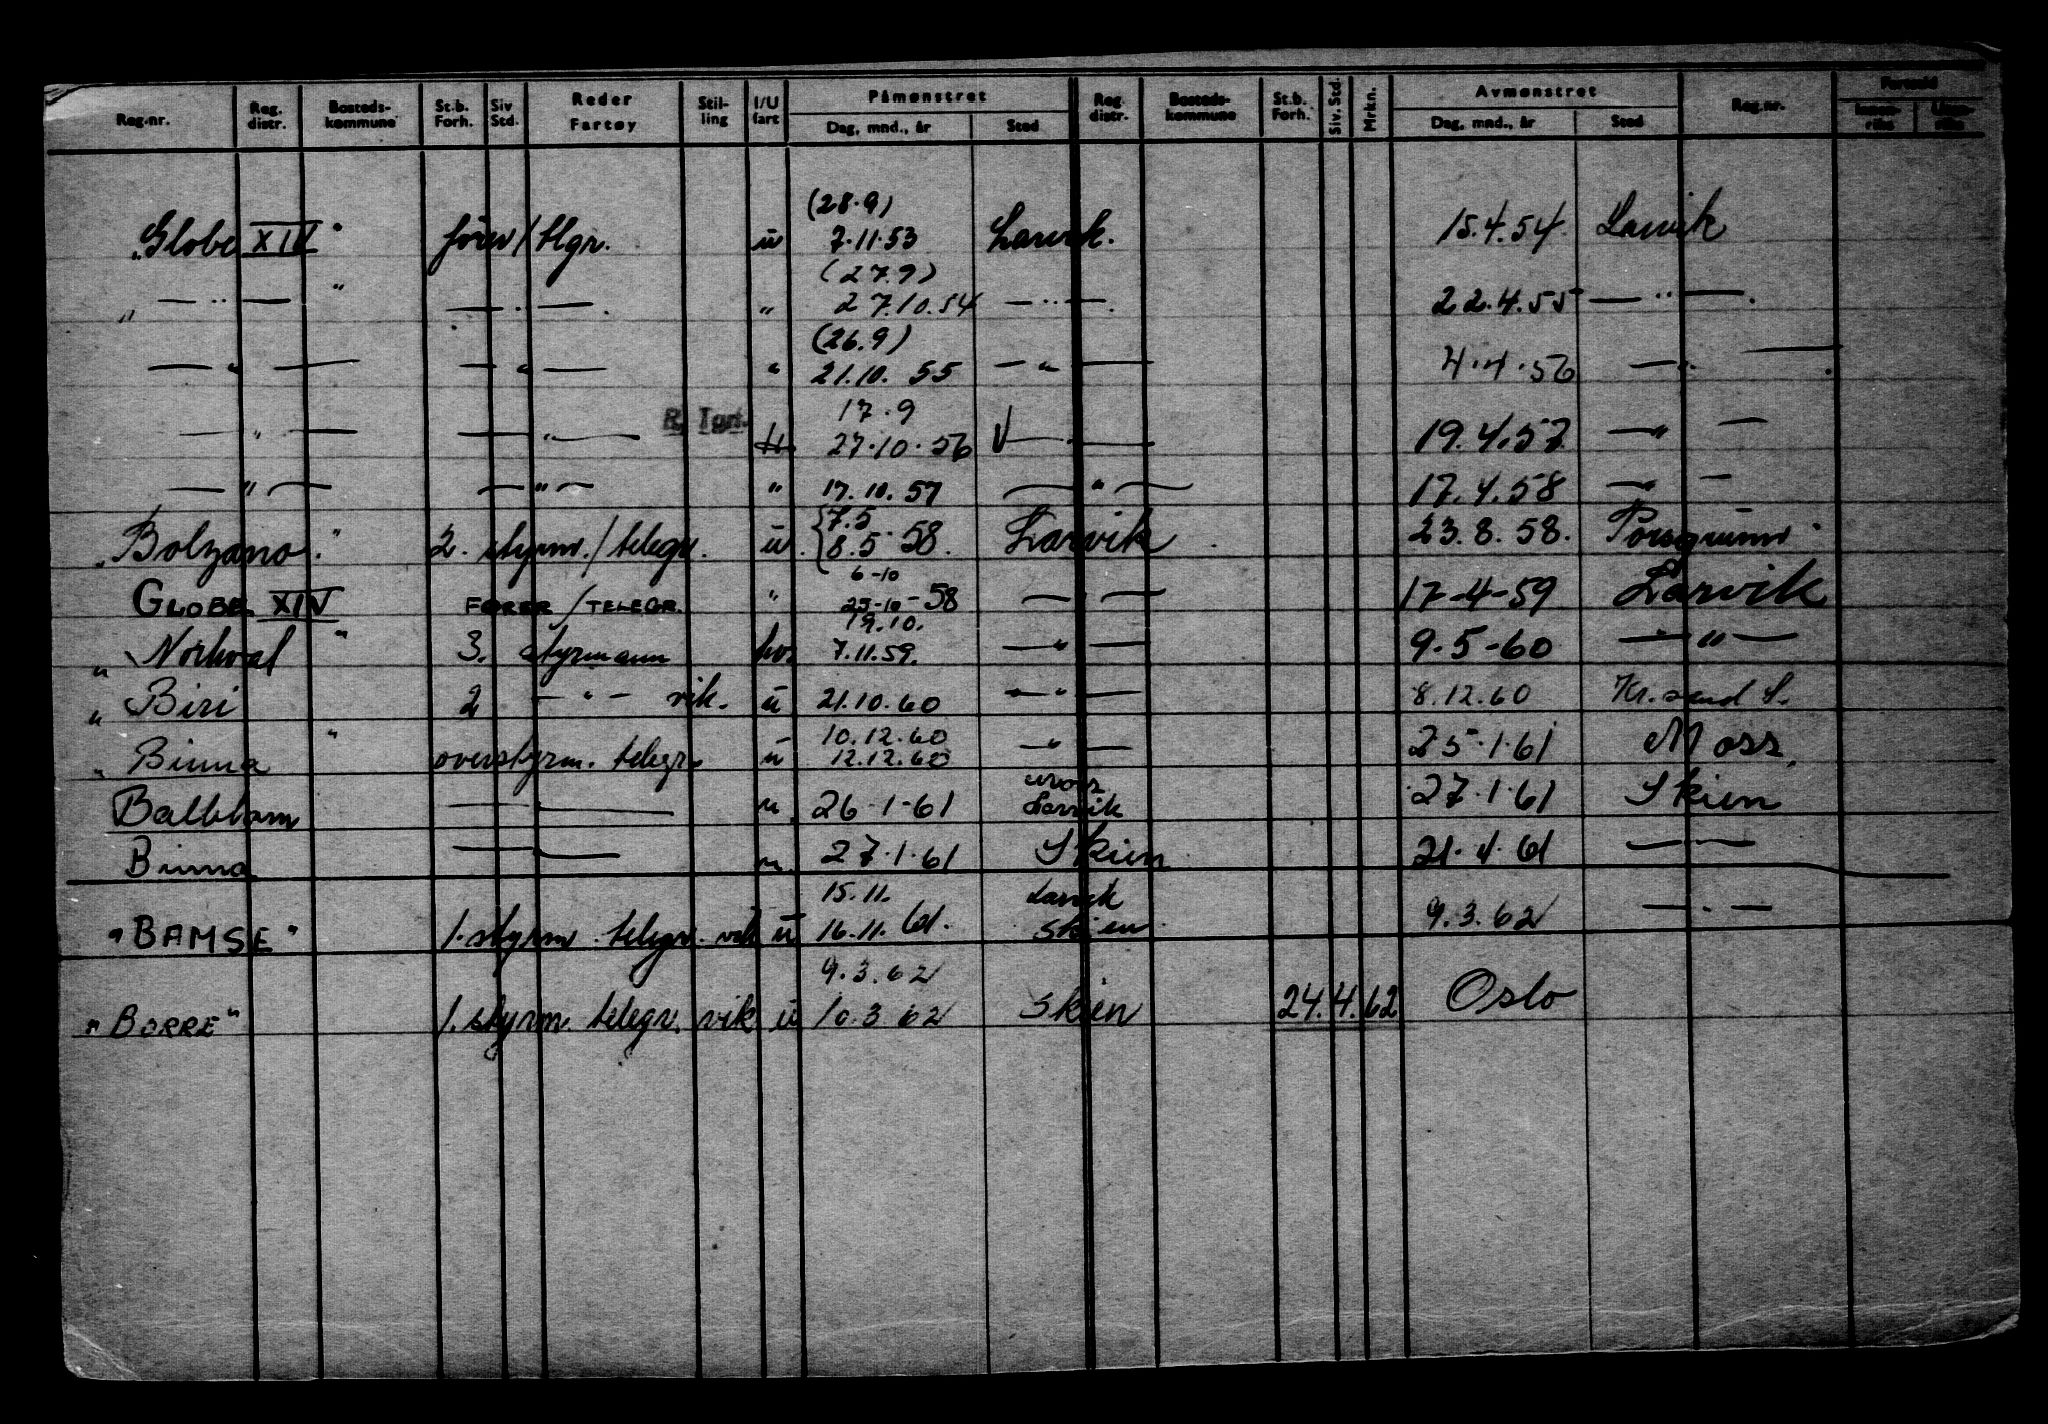 Reg.nr. Reg. distr. Bosteds- kommune St.b. Forh. Siv Std. Reder Fartøy Stil- ling I/U fart Påmønstret Dag, mnd., år Sted Reg. distr. Bosteds- kommune St.b. Forh. Siv. Std. Mrkn. Avmønstret Dag, mnd., år Sted Reg.nr.
(28.9)
"Globe XIV" fører/tlgr. u 7.11.53 Larvik. 15.4.54 Larvik
(27.9)
" — " — " — " — " 27.10.54 — " — 22.4.55 — " —
(26.9)
— " — — " — " 21.10.55 — " — 4.4.56 — " —
R. Tgrf. 17.9
— " — — " — 27.10.56 — " — 19.4.57 — " —
— " — — " — " 17.10.57 — " — 17.4.58 — " —
7.5
"Bolzano" 2. styrm./telegr. u. 8.5 58. Larvik 23.8.58. Porsgrunn
6-10
GLOBE XIV FØRER/TELEGR. " 25-10-58 — " — 17-4-59 Larvik
19.10.
"Norhval" 3. styrmann hv. 7.11.59. — " — 9.5-60 — " —
"Biri 2 — " — vik. u 21.10.60 — " — 8.12.60 Kr.sand S.
10.12.60
"Binna" overstyrm. telegr. u 12.12.60 — " — 25.1.61 Moss
Balblom — — u. 26.1.61 Larvik 27.1.61 Skien
Binna — — u. 27.1.61 Skien 21.4.61 — " —
15.11. Larvik
"BAMSE" 1. styrm. telegr. vik u 16.11.61. Skien 9.3.62 — " —
9.3.62
"BORRE" 1. styrm. telegr. vik u 10.3.62 Skien 24.4.62 Oslo